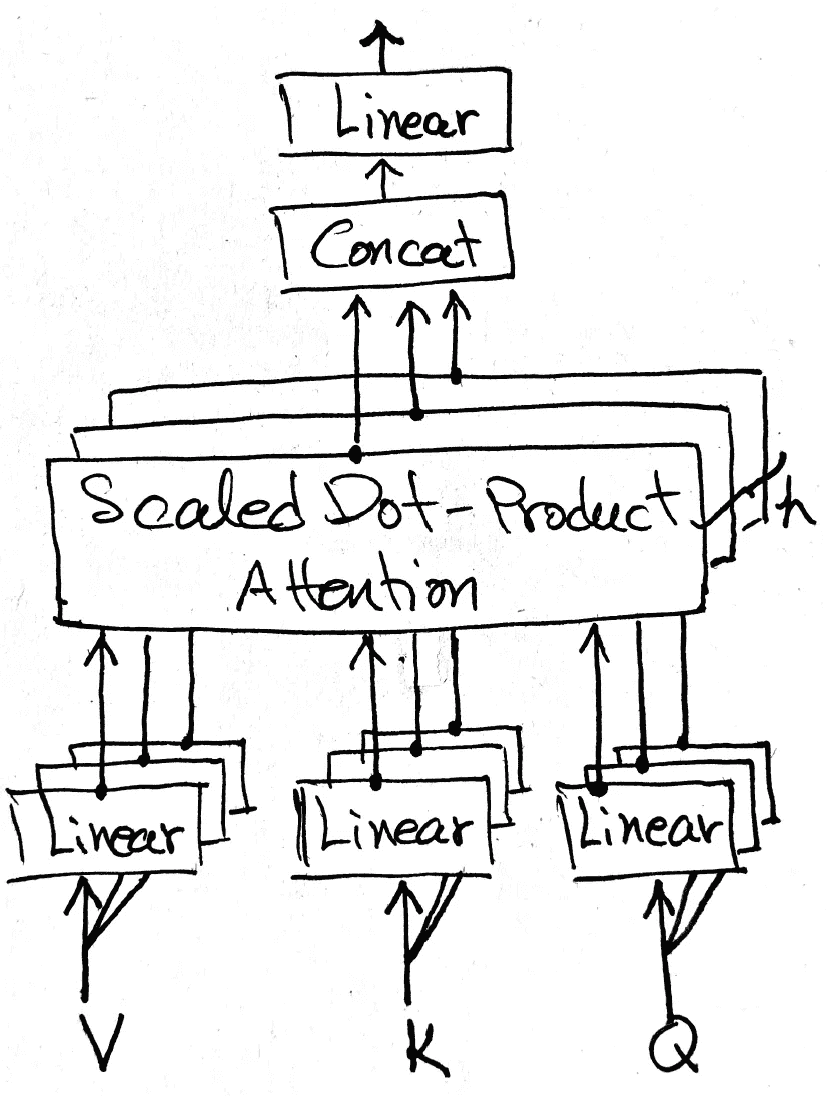 Linear
Concat
Scaled Dot-Product
Attention
h
Linear
Linear
Linear
V
K
Q